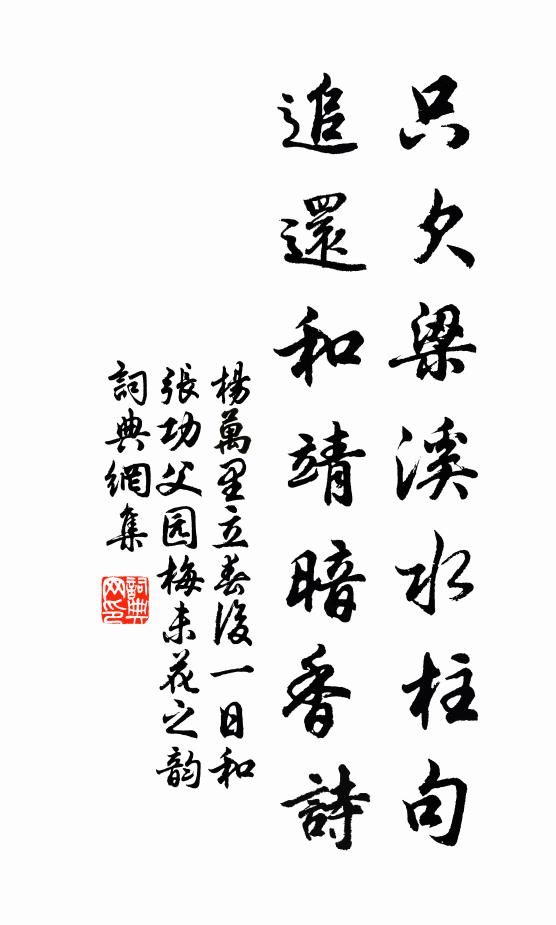 只欠梁溪水柱句
追還和靖暗香詩
楊萬里立春後一日和
張功父园梅未花之韵
詞典網集
詞典網印